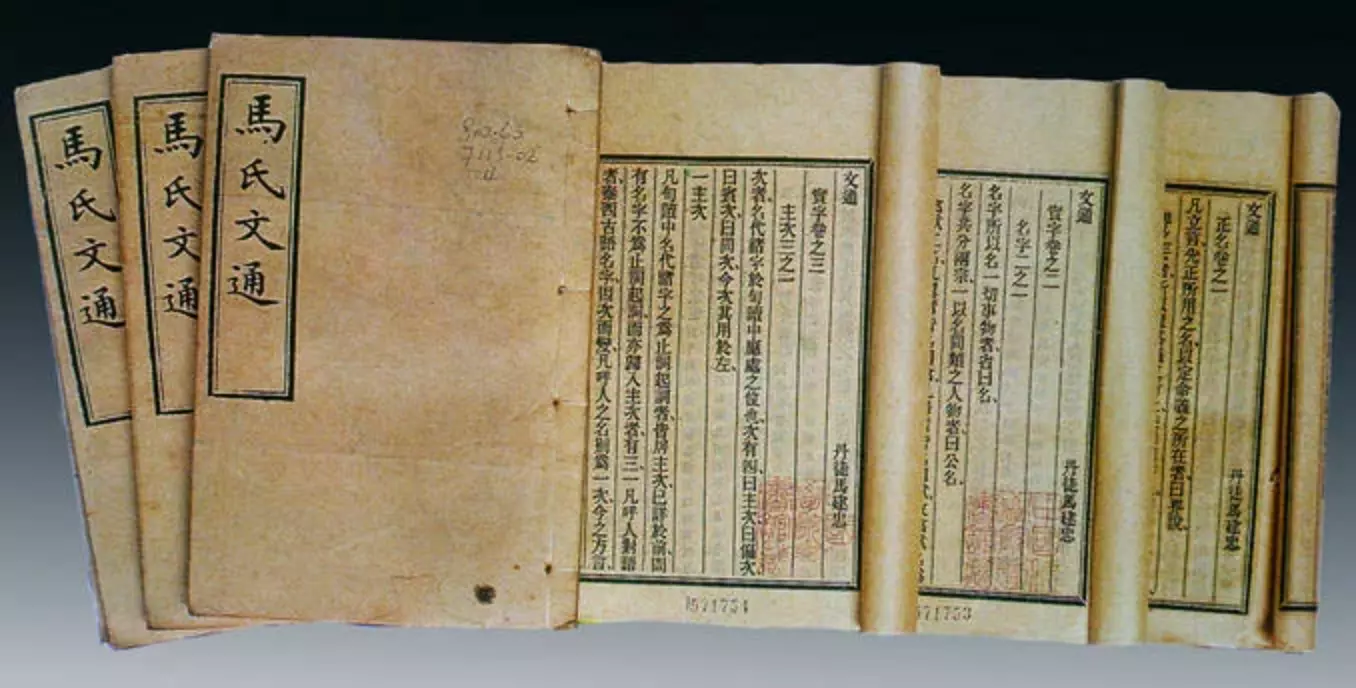 馬氏文通
馬氏文通
馬氏文通
文通
實字卷之三
丹徒馬建忠
主次三之一
次者名代諸字於句讀中應處之位也次有四曰主次曰偏次
曰賓次曰同次今次其用於左
一主次
凡句讀中名代諸字之為止詞起詞者皆居主次已詳於前間
有名字不為止詞起詞而亦歸入主次者有三一凡呼人對語
者泰西古語名字因次而變凡呼人之名別為一次今之方言
1571754
文通
實字卷之二
丹徒馬建忠
名字二之一
名字所以名一切事物者省曰名
名字共分兩宗一以名同類之人物者曰公名
571753
文通
正名卷之一
丹徒馬建忠
凡立言先正所用之名以定命義之所在者曰界說